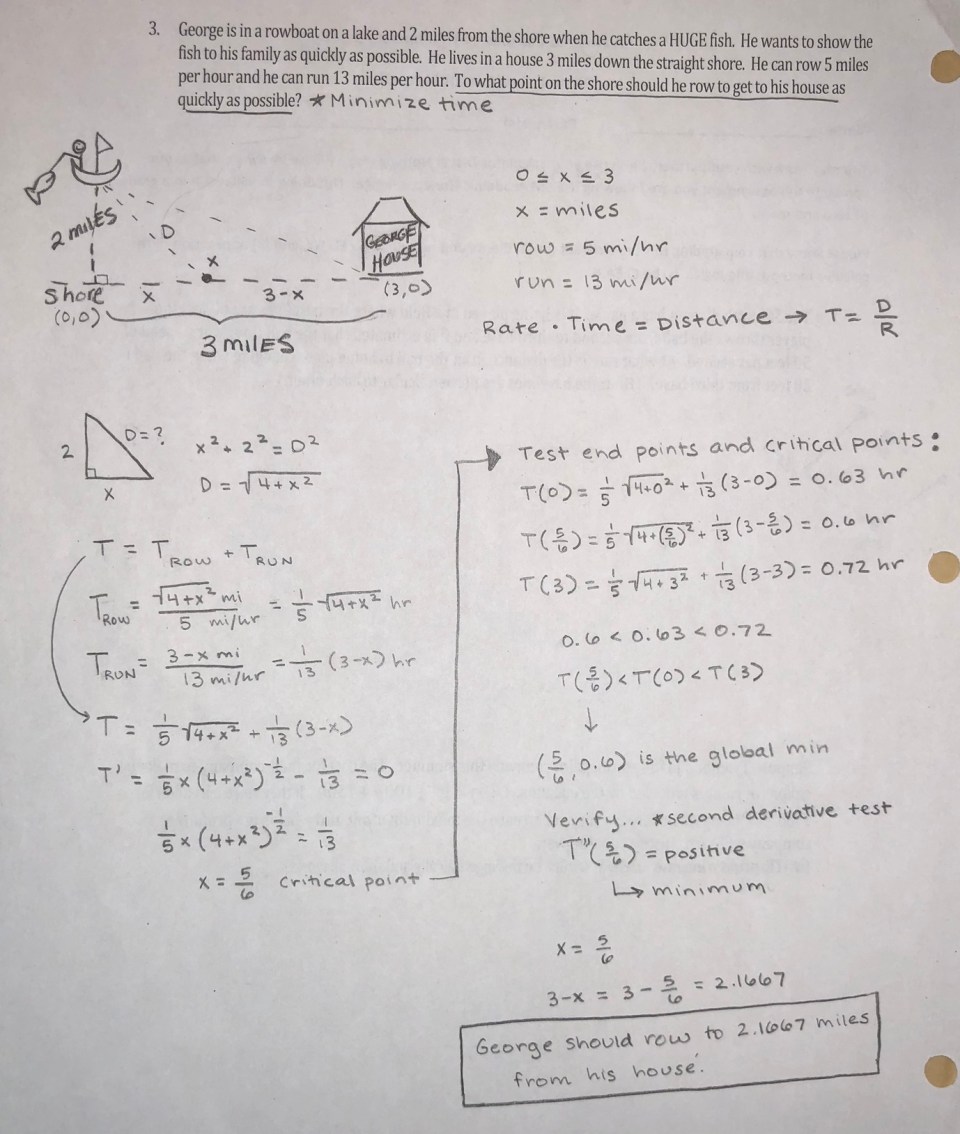 3. George is in a rowboat on a lake and 2 miles from the shore when he catches a HUGE fish. He wants to show the
fish to his family as quickly as possible. He lives in a house 3 miles down the straight shore. He can row 5 miles
per hour and he can run 13 miles per hour. To what point on the shore should he row to get to his house as
quickly as possible? * Minimize time
2 miles
D
x
GEORGE
HOUSE
Shore
x
3-x
(3,0)
(0,0)
3 MILES
0 ≤ x ≤ 3
x = miles
row = 5 mi/hr
run = 13 mi/hr
Rate · Time = Distance → T = D/R
2
D = ?
x
x² + 2² = D²
D = √(4+x²)
T = T_ROW + T_RUN
T_ROW = √(4+x²) mi / 5 mi/hr = 1/5 √(4+x²) hr
T_RUN = 3-x mi / 13 mi/hr = 1/13 (3-x) hr
T = 1/5 √(4+x²) + 1/13 (3-x)
T' = 1/5 x (4+x²)^(-1/2) - 1/13 = 0
1/5 x (4+x²)^(-1/2) = 1/13
x = 5/6 critical point
Test end points and critical points:
T(0) = 1/5 √(4+0²) + 1/13 (3-0) = 0.63 hr
T(5/6) = 1/5 √(4+(5/6)²) + 1/13 (3-5/6) = 0.6 hr
T(3) = 1/5 √(4+3²) + 1/13 (3-3) = 0.72 hr
0.6 < 0.63 < 0.72
T(5/6) < T(0) < T(3)
↓
(5/6, 0.6) is the global min
Verify... *second derivative test
T"(5/6) = positive
↳ minimum
x = 5/6
3-x = 3 - 5/6 = 2.1667
George should row to 2.1667 miles
from his house.